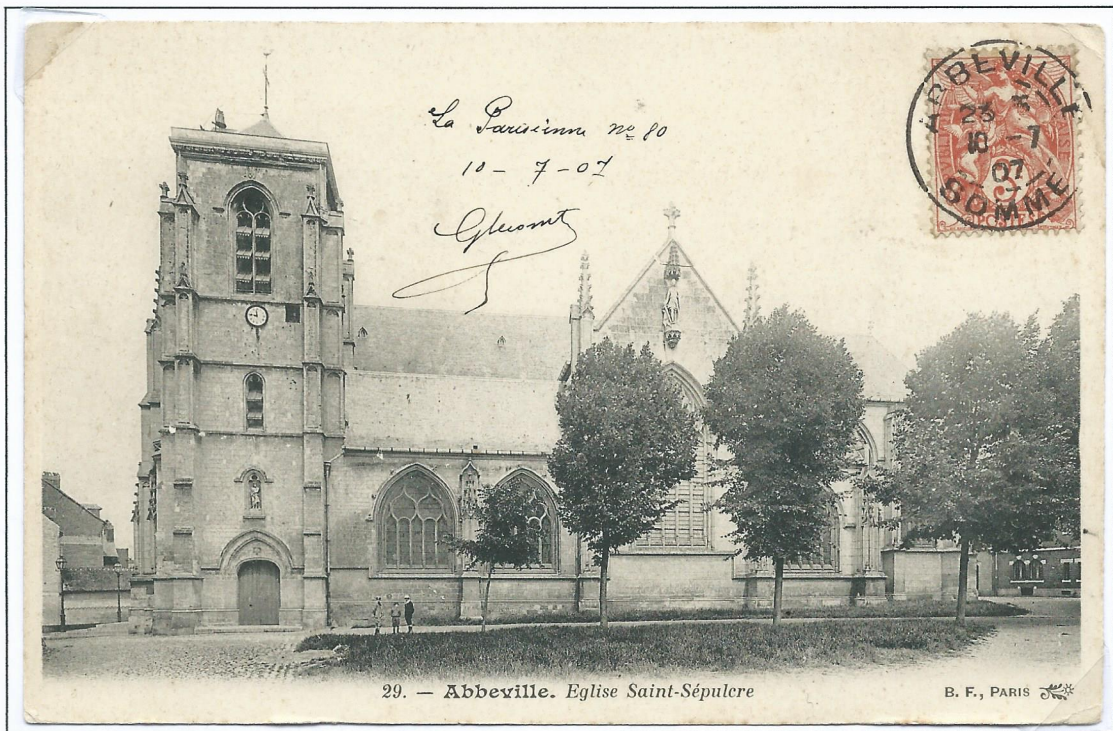 La Parisienne nº 80
10 - 7 - 07
ABBEVILLE
23
10 -7
07
SOMME
29. — Abbeville. Eglise Saint-Sépulcre
B. F., PARIS